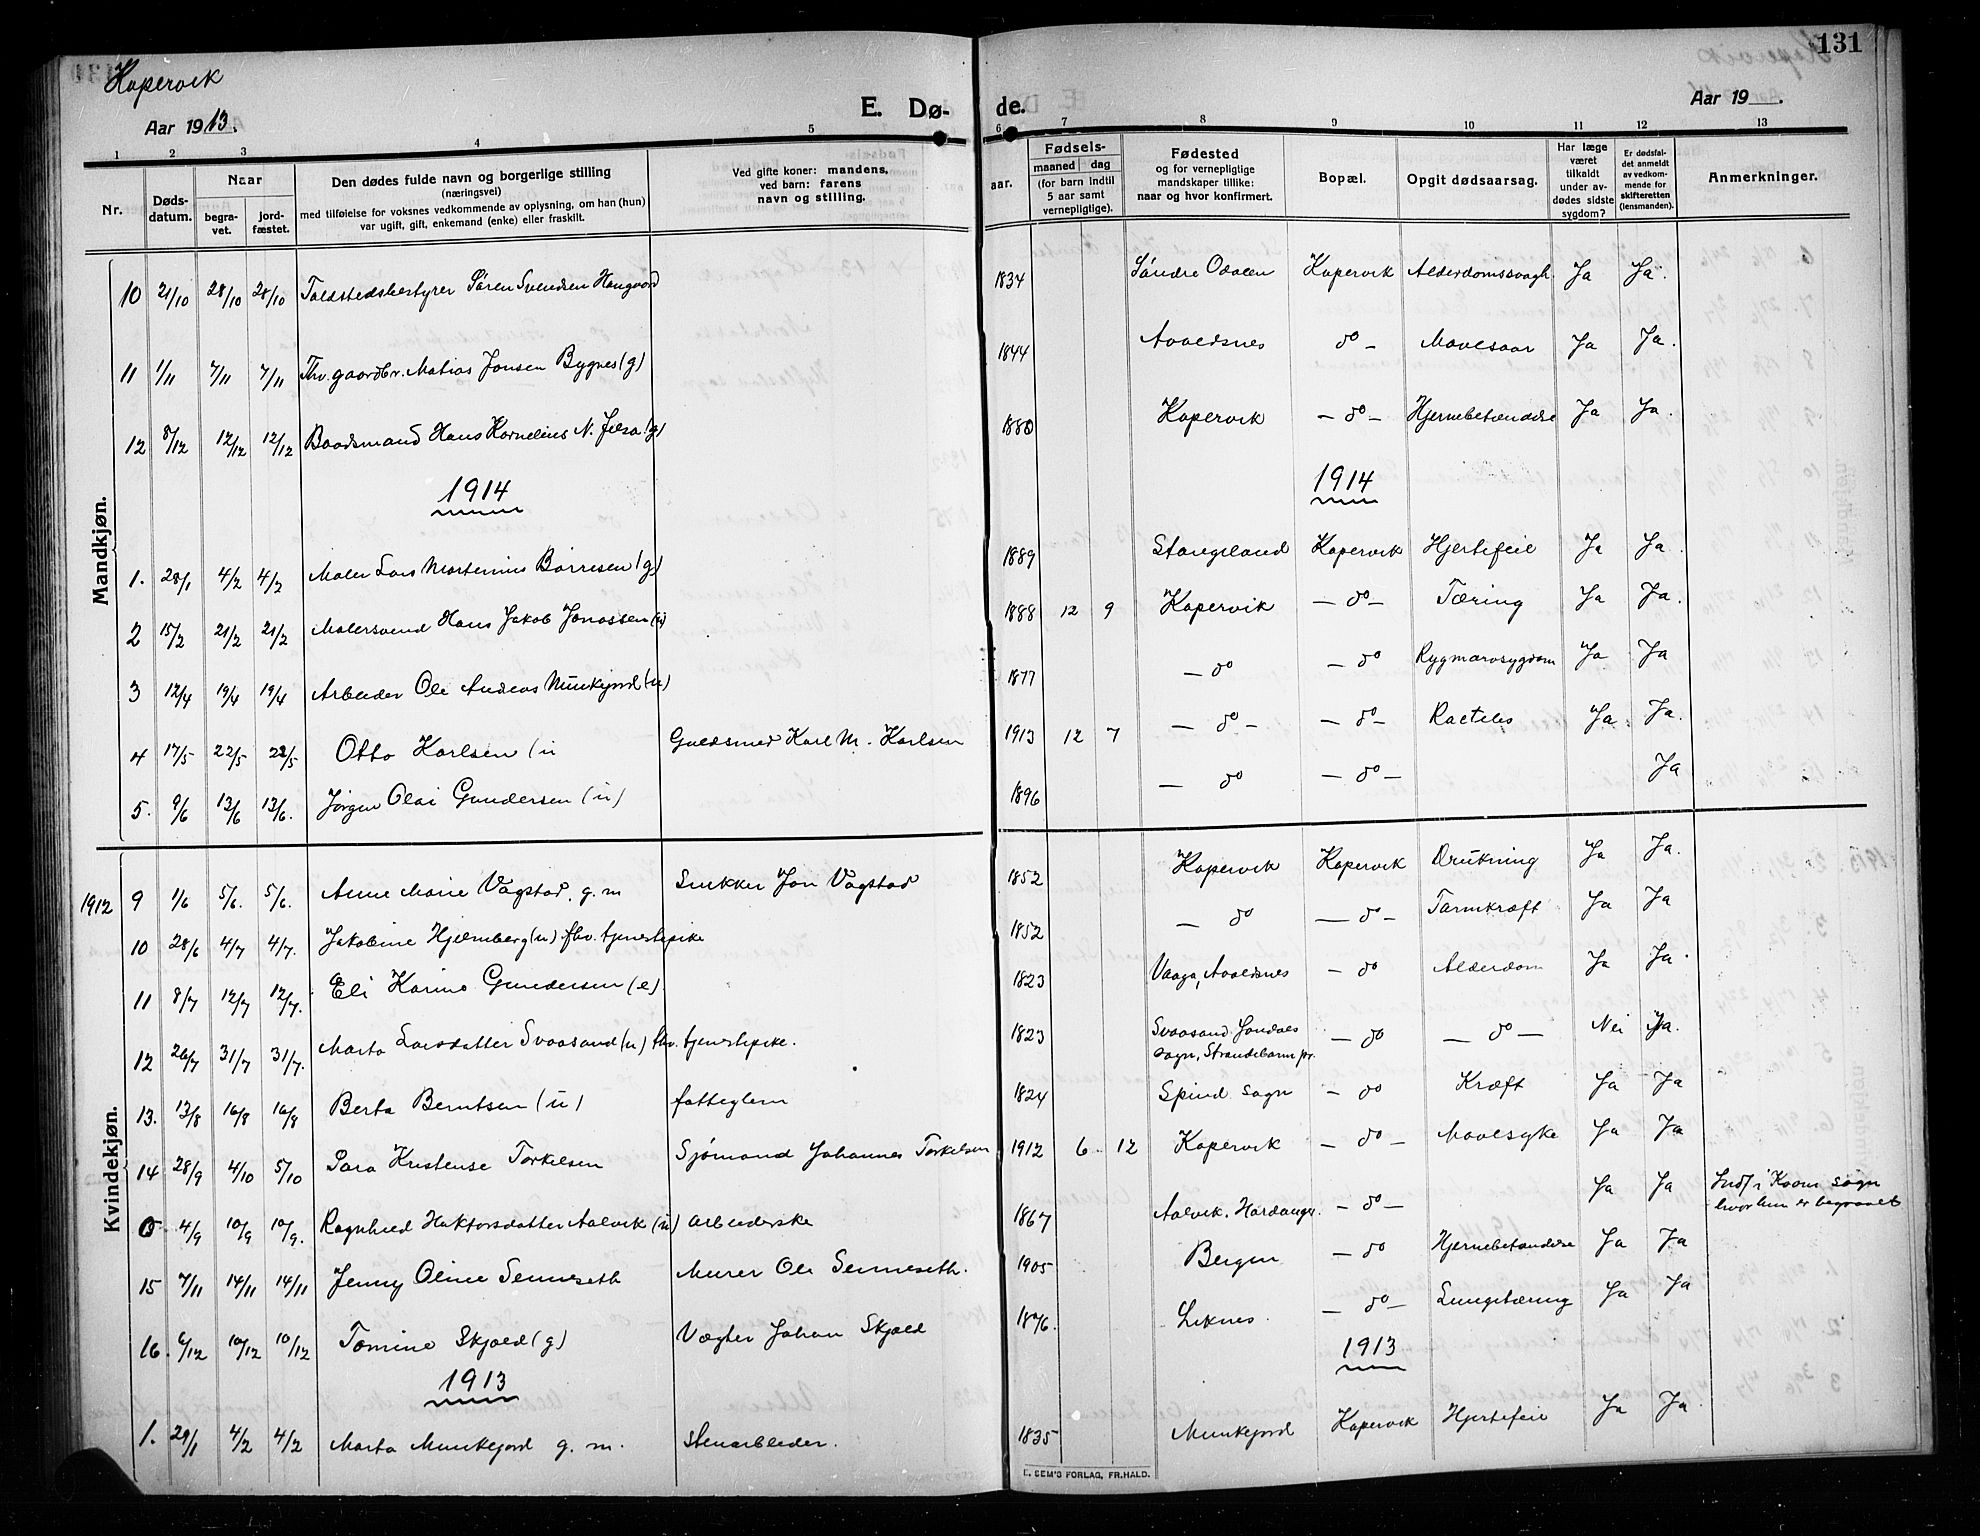 Kopervik
Aar 1913.
E. Dø-
de.
131
Aar 19___.
1 2 3 4 5 6 7 8 9 10 11 12 13
Nr.
Døds-
datum.
Naar
begra-
vet.
jord-
fæstet.
Den dødes fulde navn og borgerlige stilling
(næringsvei)
med tilføielse for voksnes vedkommende av oplysning, om han (hun)
var ugift, gift, enkemand (enke) eller fraskilt.
Ved gifte koner: mandens,
ved barn: farens
navn og stilling.
aar.
Fødsels-
maaned dag
(for barn indtil
5 aar samt
vernepligtige).
Fødested
og for vernepligtige
mandskaper tillike:
naar og hvor konfirmert.
Bopæl.
Opgit dødsaarsag.
Har læge
været
tilkaldt
under av-
dødes sidste
sygdom?
Er dødsfal-
det anmeldt
av vedkom-
mende for
skifteretten
(lensmanden).
Anmerkninger.
Mandkjøn.
10 21/10 28/10 28/10 Toldstedsbestyrer Sören Svendsen 1834 Söndre Odalen Kopervik Alderdomssvagh. Ja Ja.
11 1/11 7/11 7/11 Fhv. gaardbr. Matias Jonsen Bygnes (g) 1844 Avaldsnes do - Mavesaar Ja Ja.
12 8/12 12/12 12/12 Baadsmand Hans Kornelius N. Jelsa (g) 1880 Kopervik - do - Hjernebetændelse Ja Ja.
1914 1914
1. 28/1 4/2 4/2 Maler Lars Martinius Börresen (g) 1889 Stangeland Kopervik Hjertefeil Ja Ja.
2 15/2 21/2 21/2 Malersvend Hans Jakob Jonassen (u) 1888 12 9 Kopervik - do - Tæring Ja Ja.
3 12/4 19/4 19/4 Arbeider Ole Andreas Munkejord (u) 1877 - do - do Rygmarvsygdom Ja Ja
4 17/5 22/5 22/5 Otto Karlsen (u Guldsmed Karl M. Karlsen 1913 12 7 - do - - do - Ja Ja.
5. 9/6 13/6 13/6. Jørgen Olai Gundersen (u) 1896 - do - do - Ja
Kvindekjøn.
1912 9 1/6 5/6. 5/6. Anne Marie Vagstad, g. m Snekker Jon Vagstad 1852 Kopervik Kopervik Drukning Ja Ja.
10 28/6 4/7 4/7. Jakobine Hjelmberg (u) fhv. tjenestepike 1852 - do - do - Tarmkræft Ja Ja
11 8/7 12/7 12/7. Eli Karine Gundersen (e) 1823 Vaaga, Avaldsnes - do Alderdom Ja Ja.
12 26/7 31/7 31/7. Marta Larsdatter Svaasand (u) fhv. tjenestepike. 1823 Svaasand Jondals
sogn, Strandebarm pr. - do - do - Nei Ja.
13. 13/8 16/8 16/8 Berta Berntsen (u) fattiglem 1824 Spind sogn - do Kræft Ja Ja
14 28/9 4/10 5/10 Sara Kristense Torkelsen Sjømand Johannes Torkelsen 1912 6 12 Kopervik - do - Mavesyke Ja Ja
4/9 10/9 10/9. Ragnhild Haktorsdatter Aalvik (u) arbeiderske 1867 Aalvik, Hardanger. - do - Ja Ja Indf i Kvam sogn
hvor hun er begravet
15 7/11 14/11 14/11 Jenny Oline Senneseth Murer Ole Senneseth. 1905 Bergen - do Hjernebetændelse Ja Ja
16. 6/12 10/12 10/12 Tomine Skjold (g) Vægter Johan Skjold 1876. Liknes - do - Lungetæring Ja Ja
1913 1913
1. 29/1 4/2 4/2 Marta Munkejord g. m. stenarbeider. 1835 Munkejord Kopervik Hjertefeil Ja Ja.
E. SEM'S FORLAG, FR.HALD.